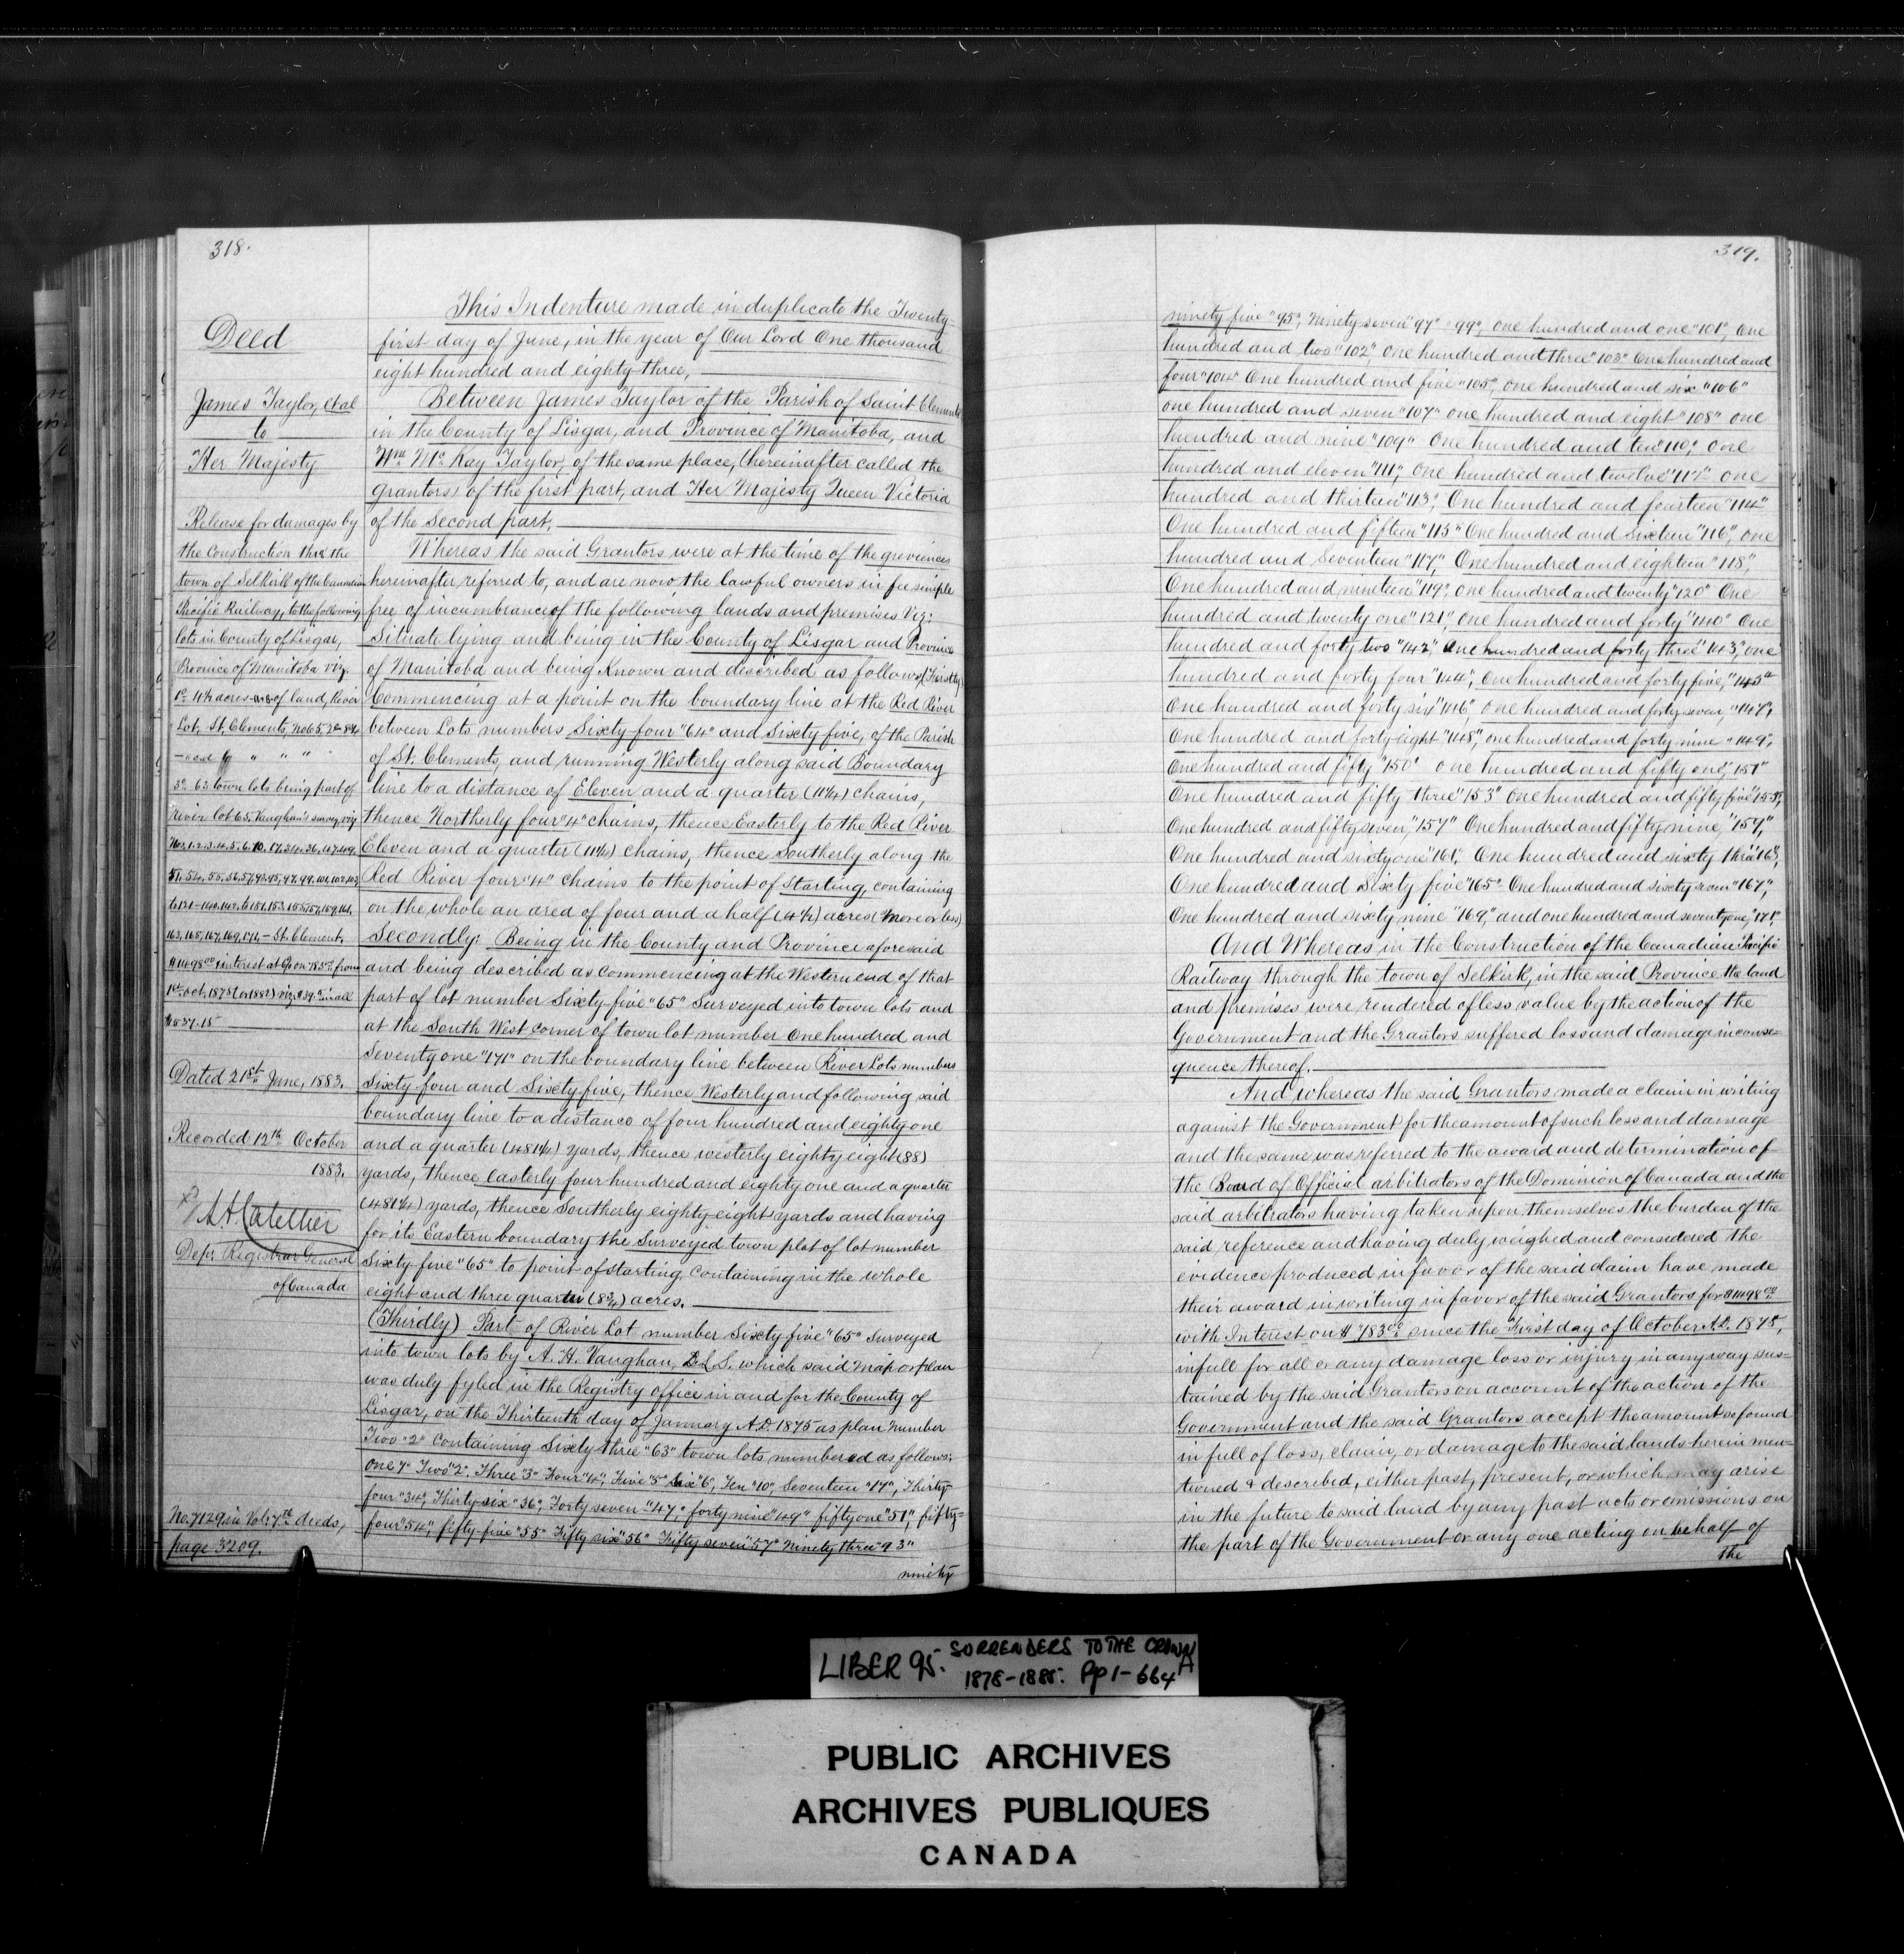 318.
Deed
James Taylor, et al
to
Her Majesty
Release for damages by
the construction thro' the
town of Selkirk of the Canadian
Pacific Railway, to the following
lots in County of Lisgar,
Province of Manitoba viz.
1º 4½ acres of land, River
Lot, St. Clements, No 65, 2º 8¾
3º 63 town lots being part of
River lot 65, Vaughan's survey, viz
163, 165, 167, 169, 171, - St. Clement.
Dated 21st June, 1883.
Recorded 12th October
1883.
Depy. Registrar General
of Canada
No. 7129 in Vol: 7th deeds,
page 3209.
This Indenture made in duplicate the Twenty-
first day of June, in the year of Our Lord One thousand
eight hundred and eighty three,
Between James Taylor of the Parish of Saint Clements
in the County of Lisgar, and Province of Manitoba, and
Wm. Mc Kay Taylor, of the same place, (hereinafter called the
grantors) of the first part, and Her Majesty Queen Victoria
of the Second part,
Whereas the said Grantors were at the time of the greviences
hereinafter referred to, and are now the lawful owners in fee simple
free of incumbrance of the following lands and premises Viz:
Situate lying and being in the County of Lisgar and Province
of Manitoba and being Known and described as follows, (Firstly)
Commencing at a point on the boundary line at the Red River
between Lots numbers Sixty-four "64" and Sixty-five, of the Parish
of St. Clements, and running Westerly along said Boundary
line to a distance of Eleven and a quarter (11¼) chains,
thence Northerly four "4" chains, thence Easterly to the Red River
Eleven and a quarter (11¼) chains, thence Southerly along the
Red River four "4" chains to the point of Starting, containing
on the whole an area of four and a half (4½) acres (more or less)
Secondly: Being in the County and Province aforesaid
and being described as commencing at the Western end of that
part of lot number Sixty-five "65" Surveyed into town lots and
at the South West corner of town lot number One hundred and
Seventy one "171" on the boundary line between River Lots numbers
Sixty-four and Sixty-five, thence Westerly and following said
boundary line to a distance of four hundred and eighty one
and a quarter (481¼) yards, thence westerly eighty eight (88)
yards, thence easterly four hundred and eighty one and a quarter
(481¼) yards, thence Southerly eighty eight yards and having
for its Eastern boundary the Surveyed town plot of lot number
Sixty five "65" to point of starting, containing in the whole
eight and three quarter (8¾) acres.
(Thirdly) Part of River Lot number Sixty five "65" Surveyed
into town lots by A. H. Vaughan, D. L. S. which said map or plan
was duly fyled in the Registry office in and for the County of
Lisgar, on the Thirteenth day of January A.D. 1875 as plan Number
Two "2" containing Sixty three "63" town lots numbered as follows;
One "1" Two "2", Three "3" Four "4", Five "5" Six "6", Ten "10", Seventeen "17", Thirty
four "34", Thirty six "36", Forty seven "47", forty nine "49" fifty one "51", fifty-
four "54", fifty-five "55" Fifty six "56" Fifty seven "57" Ninety three "93"
ninety
319.
ninety five "95", Ninety seven "97" "99", One hundred and one "101", One
hundred and two "102", One hundred and three "103" One hundred and
four "104" One hundred and five "105", One hundred and six "106"
one hundred and seven "107" one hundred and eight "108" one
hundred and nine "109" One hundred and ten "110", One
hundred and eleven "111", One hundred and twelve "112" one
hundred and thirteen "113", One hundred and fourteen "114"
One hundred and fifteen "115" One hundred and Sixteen "116", one
hundred and Seventeen "117", One hundred and eighteen "118",
One hundred and nineteen "119", One hundred and twenty "120" One
hundred and twenty one "121", One hundred and forty "140" One
hundred and forty two "142", One hundred and forty three "143", one
hundred and forty four "144", One hundred and forty five, "145"
One hundred and forty six "146", One hundred and forty seven, "147",
One hundred and forty-eight "148", one hundred and forty nine "149",
One hundred and fifty "150" one hundred and fifty one, "151"
One hundred and fifty three "153" One hundred and fifty five "155",
One hundred and fifty seven, "157" One hundred and fifty nine, "159,"
One hundred and sixty one "161", One hundred and sixty three "163,
One hundred and Sixty five "165" One hundred and Sixty seven "167,"
One hundred and sixty nine "169," and one hundred and seventy one, "171",
And Whereas in the Construction of the Canadian Pacific
Railway through the town of Selkirk, in the said Province the land
and premises were rendered of less value by the action of the
Government and the Grantors suffered loss and damage in conse=
quence thereof.
And whereas the said Grantors made a claim in writing
against the Government for the amount of such loss and damage
and the same was referred to the award and determination of
the Board of Official arbitrators of the Dominion of Canada and the
said arbitrators having taken upon themselves the burden of the
said reference and having duly weighed and considered the
evidence produced in favor of the said claim have made
their award in writing in favor of the said Grantors for $1498.00
with Interest on $783.00 since the First day of October A.D. 1875,
in full for all or any damage loss or injury in any way sus=
tained by the said Grantors on account of the action of the
Government and the said Grantors accept the amount so found
in full of loss, claim, or damage to the said lands herein men=
tioned & described, either past, present, or which may arise
in the future to said land by any past acts or omissions on
the part of the Government or any one acting on behalf of
the
LIBER 95. SURRENDERS TO THE CROWN
1878-1885. Pp 1-664 A
PUBLIC ARCHIVES
ARCHIVES PUBLIQUES
CANADA